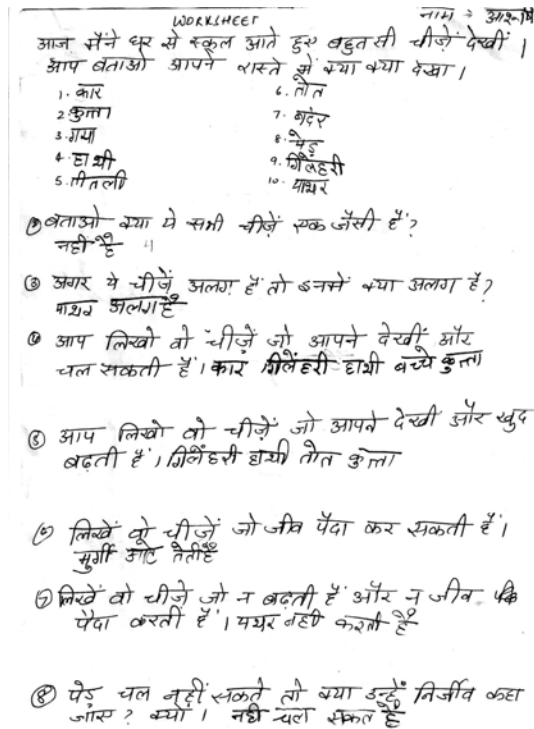 WORKSHEET
नाम :- आरुषि
आज मैंने घर से स्कूल आते हुए बहुत सी चीज़ें देखीं ।
आप बताओ आपने रास्ते में क्या क्या देखा ।
1. कार
2. कुत्ता
3. गया
4. हाथी
5. तीतली
6. तोत
7. बदंर
8. पेड़
9. गिलेहरी
10. पाथर
बताओ क्या ये सभी चीज़ें एक जैसी हैं?
नहीं है
अगर ये चीज़ें अलग हैं तो इनमें क्या अलग है?
पाथर अलग है
आप लिखो वो चीज़ें जो आपने देखीं और
चल सकती हैं । कार गिलेहरी हाथी बच्चे कुत्ता
आप लिखो वो चीज़ें जो आपने देखी और खुद
बढ़ती हैं । गिलेहरी हाथी तोत कुत्ता
लिखें वो चीज़ें जो जीव पैदा कर सकती हैं ।
मुर्गी
लिखें वो चीज़े जो न बढ़ती हैं और न जीव
पैदा करतीं हैं । पथर नही करती है
⑧ पेड़ चल नहीं सकते तो क्या उन्हें निर्जीव कहा
जाए ? क्यों । नही चल सकत है